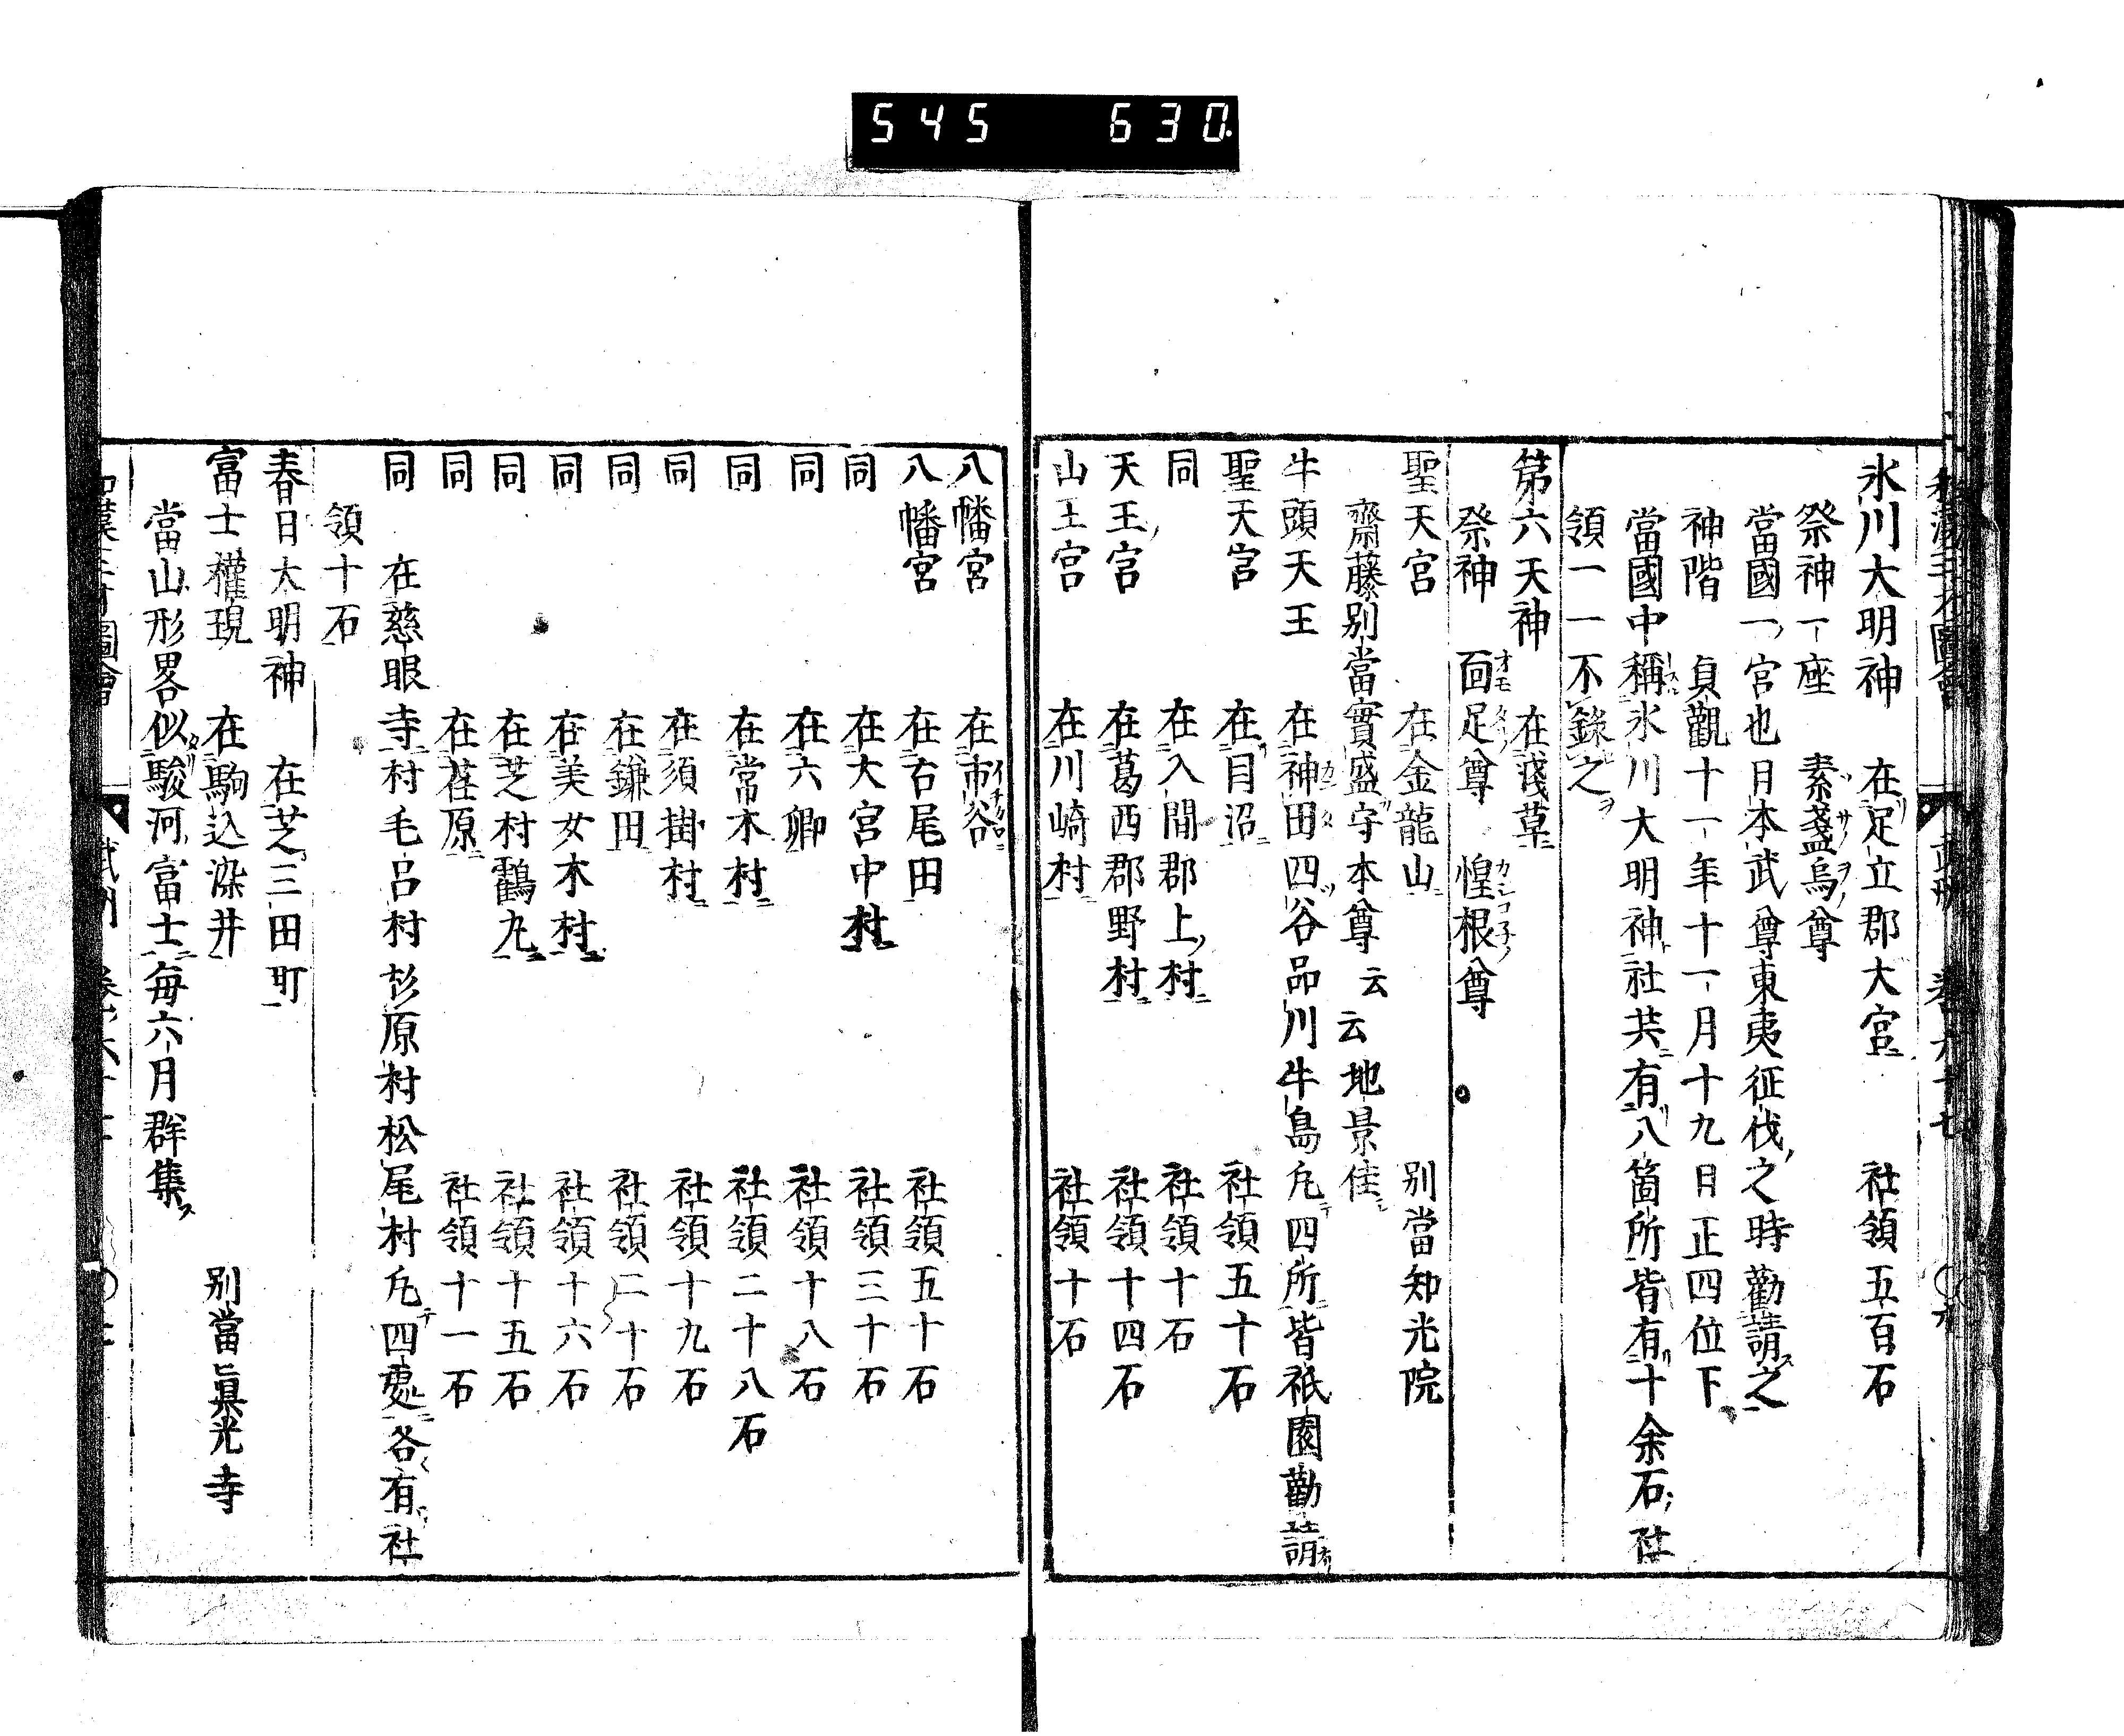 545 630
氷川大明神 在足立郡大宮 社領五百石
祭神一座 素盞烏尊
當國一宮也日本武尊東夷征伐之時勸請之
神階 貞觀十一年十一月十九日正四位下
當國中稱氷川大明神社共有八箇所皆有十余石社
領一一不錄之
第六天神 在淺草
祭神 面足尊 惶根尊
聖天宮 在金龍山 別當知光院
齋藤別當實盛守本尊云云地景佳
牛頭天王 在神田四谷品川牛島凡四所皆祇園勸請
聖天宮 在目沼 社領五十石
同 在入間郡上村 社領十石
天王宮 在葛西郡野村 社領十四石
山王宮 在川崎村 社領十石
八幡宮 在市谷
八幡宮 在右尾田 社領五十石
同 在大宮中村 社領三十石
同 在六郷 社領十八石
同 在常木村 社領二十八石
同 在須掛村 社領十九石
同 在鎌田 社領二十石
同 在美女木村 社領十六石
同 在芝村鸖丸 社領十五石
同 在荏原 社領十一石
同 在慈眼寺村毛呂村杉原村松尾村凡四處各有社
領十石
春日大明神 在芝三田町
富士權現 在駒込染井 別當眞光寺
當山形畧似駿河富士每六月群集